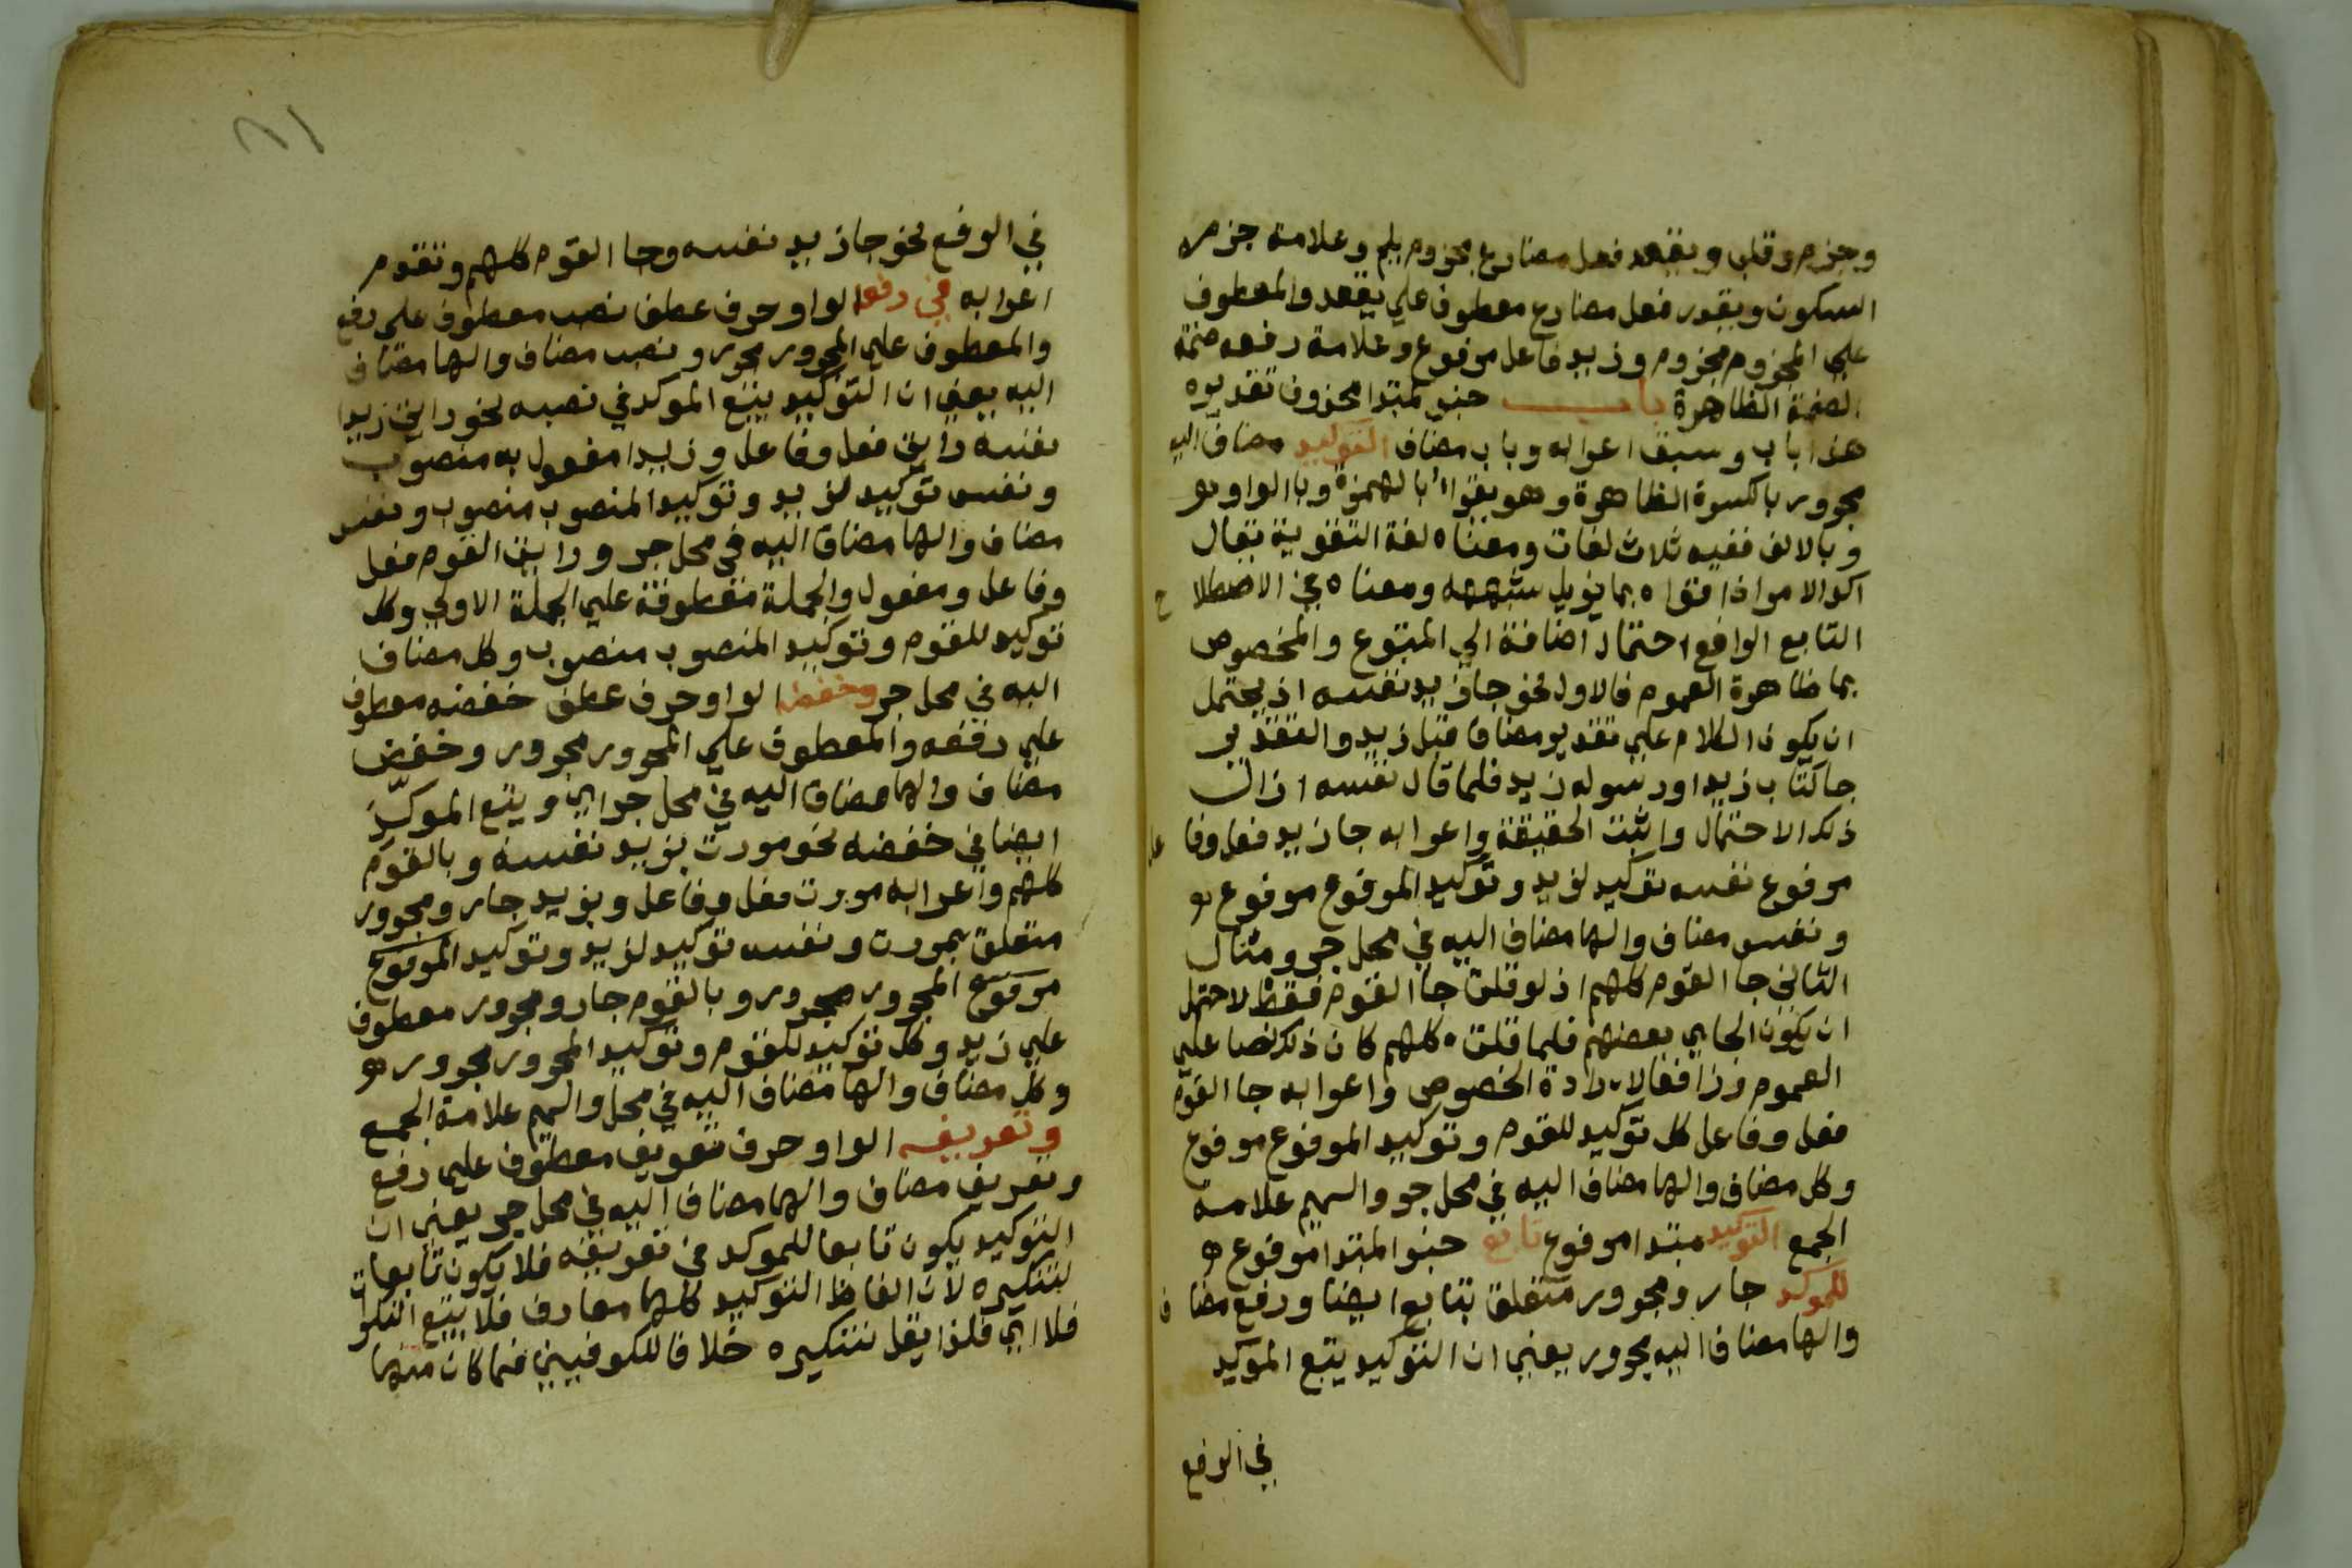 وجزم وقلب ويقعد فعل مضارع مجزوم بلم وعلامة جزمه
السكون ويقدر فعل مضارع معطوف علي يقعد والمعطوف
علي المجزوم مجزوم وزيد فاعل مرفوع وعلامة رفعه ضمة
الضمة الظاهرة باب خبر لمبتدا محذوف تقديره
هذا باب وسبق اعرابه وباب مضاف التوكيد مضاف اليه
مجرور بالكسرة الظاهرة وهو يقرا بالهمزة وبالواو
وبالالف ففيه ثلاث لغات ومعناه لغة التقوية يقال
اكد الامر اذا قواه بما يزيل شبهه ومعناه في الاصطلاح
التابع الرافع احتمال اضافة الي المتبوع والخصوص
بما ظاهرة العموم فالاول نحو جا زيد نفسه اذ يحتمل
ان يكون الكلام علي تقدير مضاف قبل زيد والتقدير
جا كتاب زيد او رسوله زيد فلما قال نفسه ازال
ذلك الاحتمال واثبت الحقيقة واعرابه جا زيد فعل وفاعل
مرفوع نفسه توكيد لزيد وتوكيد المرفوع مرفوع
ونفس مضاف والها مضاف اليه في محل جر ومثال
الثاني جا القوم كلهم اذ لو قلت جا القوم فقط لاحتمل
ان يكون الجاي بعضهم فلما قلت كلهم كان ذلك نصا علي
العموم رافعا لارادة الخصوص واعرابه جا القوم
فعل وفاعل كل توكيد للقوم وتوكيد المرفوع مرفوع
وكل مضاف والها مضاف اليه في محل جر والميم علامة
الجمع التوكيد مبتدا مرفوع تابع خبر المبتدا مرفوع
للموكد جار ومجرور متعلق بتابع ايضا ورفع مضاف
والها مضاف اليه مجرور يعني ان التوكيد يتبع الموكد
في الرفع
في الرفع نحو جا زيد نفسه وجا القوم كلهم وتقدم
اعرابه في رفعه الواو حرف عطف نصب معطوف علي رفع
والمعطوف علي المجرور مجرور ونصب مضاف والها مضاف
اليه يعني ان التوكيد يتبع الموكد في نصبه نحو رايت زيدا
نفسه رايت فعل وفاعل وزيدا مفعول به منصوب
ونفسه توكيد لزيد وتوكيد المنصوب منصوب ونفس
مضاف والها مضاف اليه في محل جر ورايت القوم فعل
وفاعل ومفعول والجملة معطوفة علي الجملة الاولي وكل
توكيد للقوم وتوكيد المنصوب منصوب وكل مضاف
اليه في محل جر وخفضه الواو حرف عطف خفضه معطوف
علي رفعه والمعطوف علي المجرور مجرور وخفض
مضاف والها مضاف اليه في محل جر اي ويتبع الموكد
ايضا في خفضه نحو مررت بزيد نفسه وبالقوم
كلهم واعرابه مررت فعل وفاعل وبزيد جار ومجرور
متعلق بمررت ونفسه توكيد لزيد وتوكيد المرفوع
مرفوع المجرور مجرور وبالقوم جار ومجرور معطوف
علي زيد وكل توكيد للقوم وتوكيد المجرور مجرور
وكل مضاف والها مضاف اليه في محل والميم علامة الجمع
وتعريفه الواو حرف تعريف معطوف علي رفع
وتعريف مضاف والها مضاف اليه في محل جر يعني ان
التوكيد يكون تابعا للموكد في تعريفه فلا يكون تابعا
لتنكيره لان الفاظ التوكيد كلها معارف فلا يتبع النكرات
فلا اي فلذا يقل تنكيره خلافا للكوفيين فما كان منها